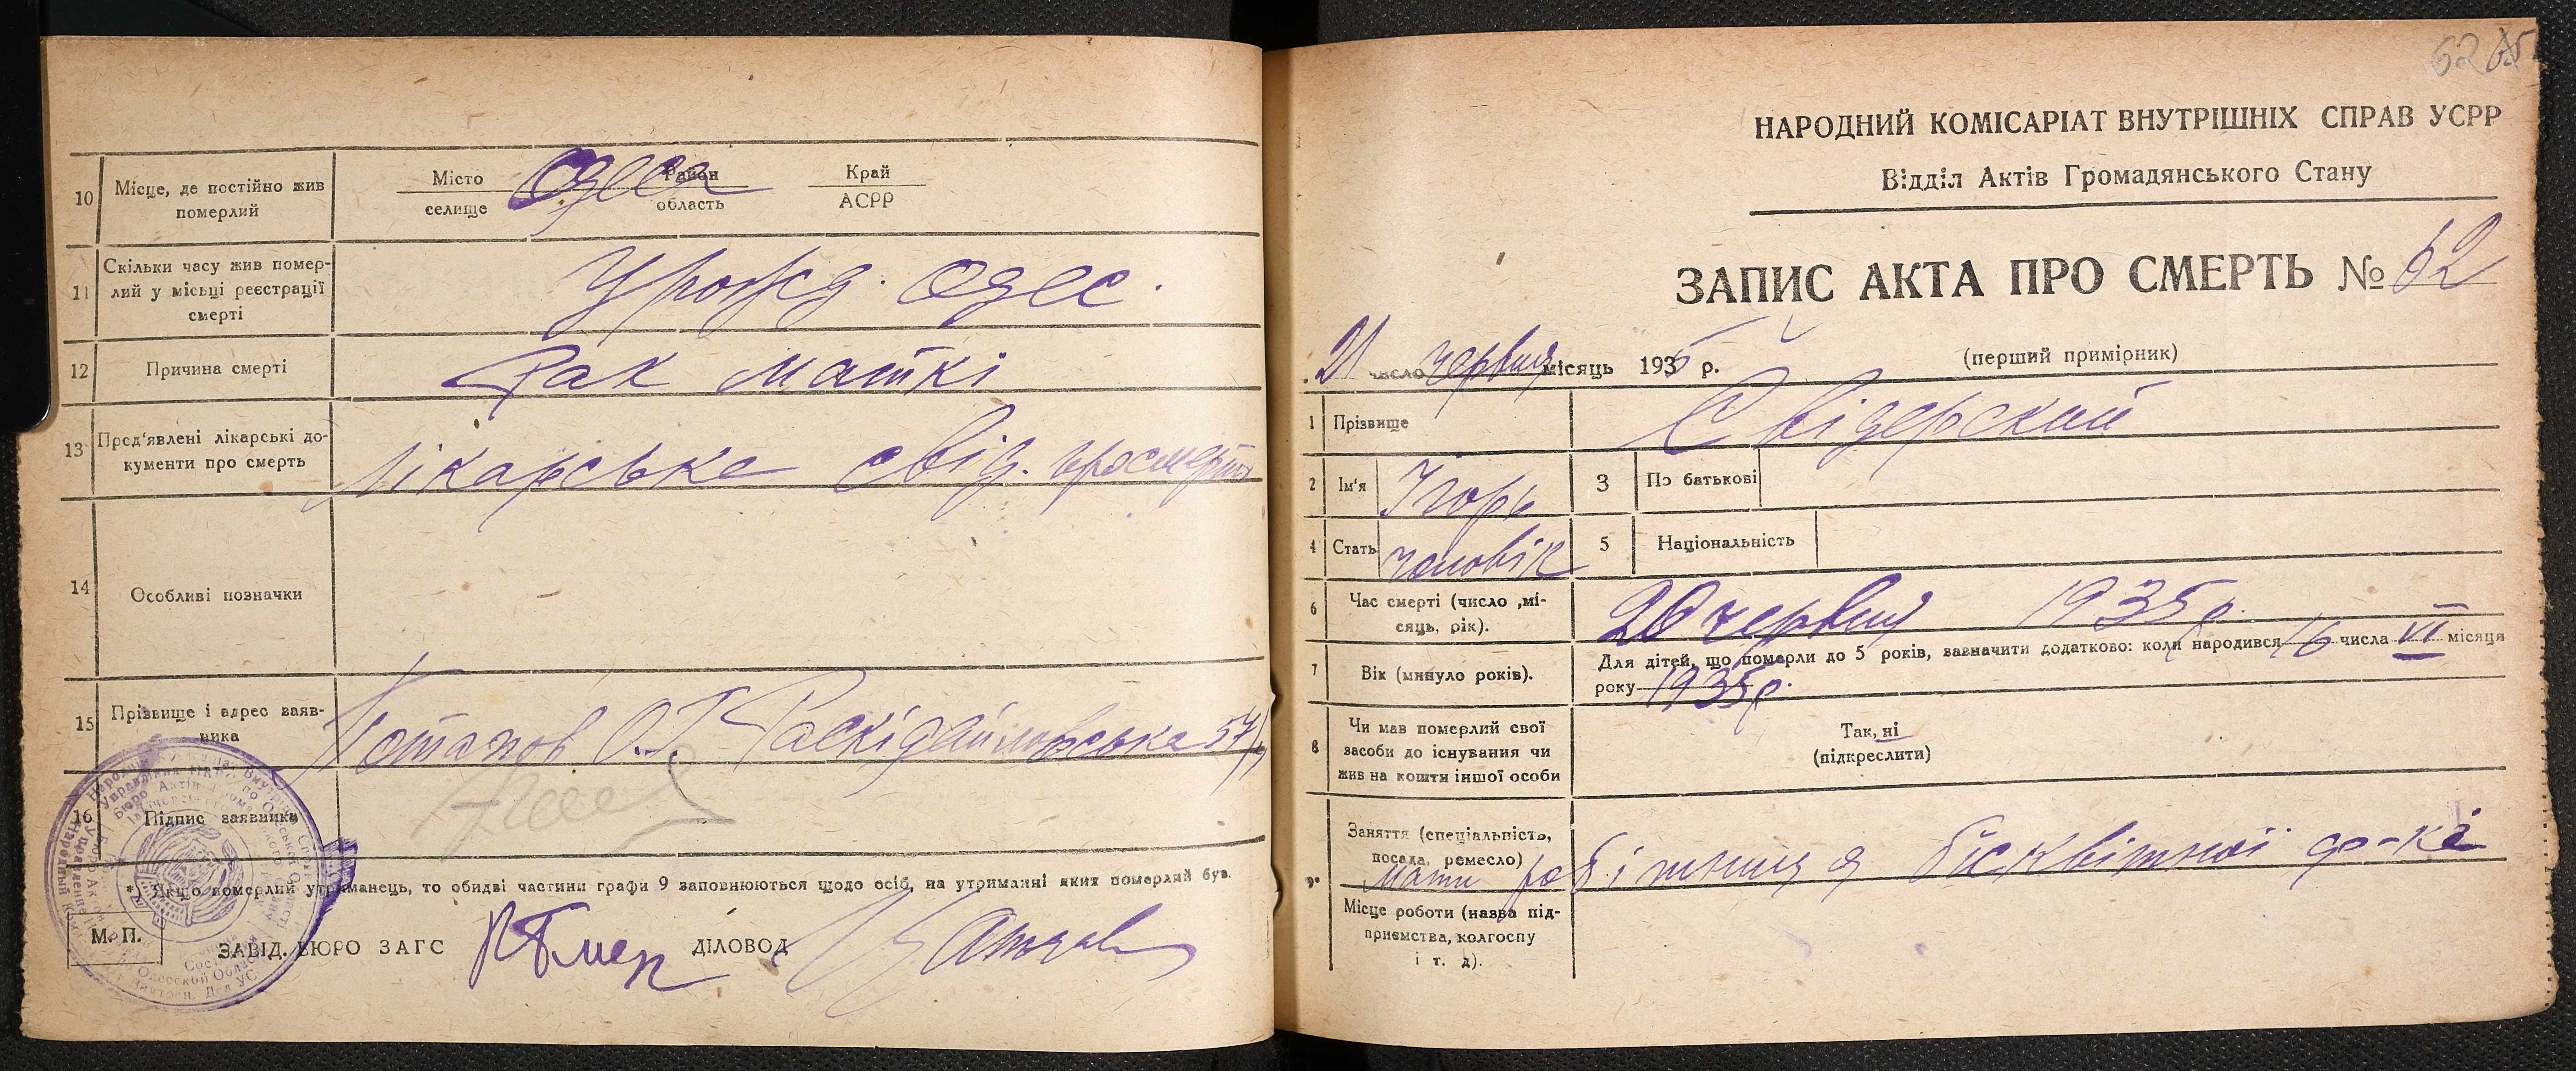 10 Місце, де постійно жив померлий
Місто селище Одеса Район область Край АСРР
11 Скільки часу жив помер-
лий у місьці реєстрації
смерті
Урожд. Одес.
12 Причина смерті Рак маткі
13 Пред'явлені лікарські до-
кументи про смерть
лікарське свід. про смерть
14 Особливі позначки
15 Прізвище і адрес заяв-
ника
Потапов О.Г. Раскідайловська 57
16 Підпис заявника
*) Якщо померлий утриманець, то обидві частини графи 9 заповнюються щодо осіб, на утриманні яких померлий був.
М. П.
ЗАВІД. БЮРО ЗАГС ДІЛОВОД
62
НАРОДНИЙ КОМІСАРІАТ ВНУТРІШНІХ СПРАВ УСРР
Відділ Актів Громадянського Стану
ЗАПИС АКТА ПРО СМЕРТЬ № 62
21 число червня місяць 1935 р. (перший примірник)
1 Прізвище Свідерский
2 Ім'я Ігорь 3 По батькові
4 Стать чоловік 5 Національність
6 Час смерті (число, мі-
сяць, рік).
20 червня 1935 р.
7 Вік (минуло років).
Для дітей, що померли до 5 років, зазначити додатково: коли народився 16 числа VI місяця
року 1935 р.
8 Чи мав померлий свої
засоби до існування чи
жив на кошти іншої особи
Так, ні
(підкреслити)
9* Заняття (спеціальність,
посада, ремесло)
мати робітниця бісквітної ф-кі
Місце роботи (назва під-
приємства, колгоспу
і т. д).